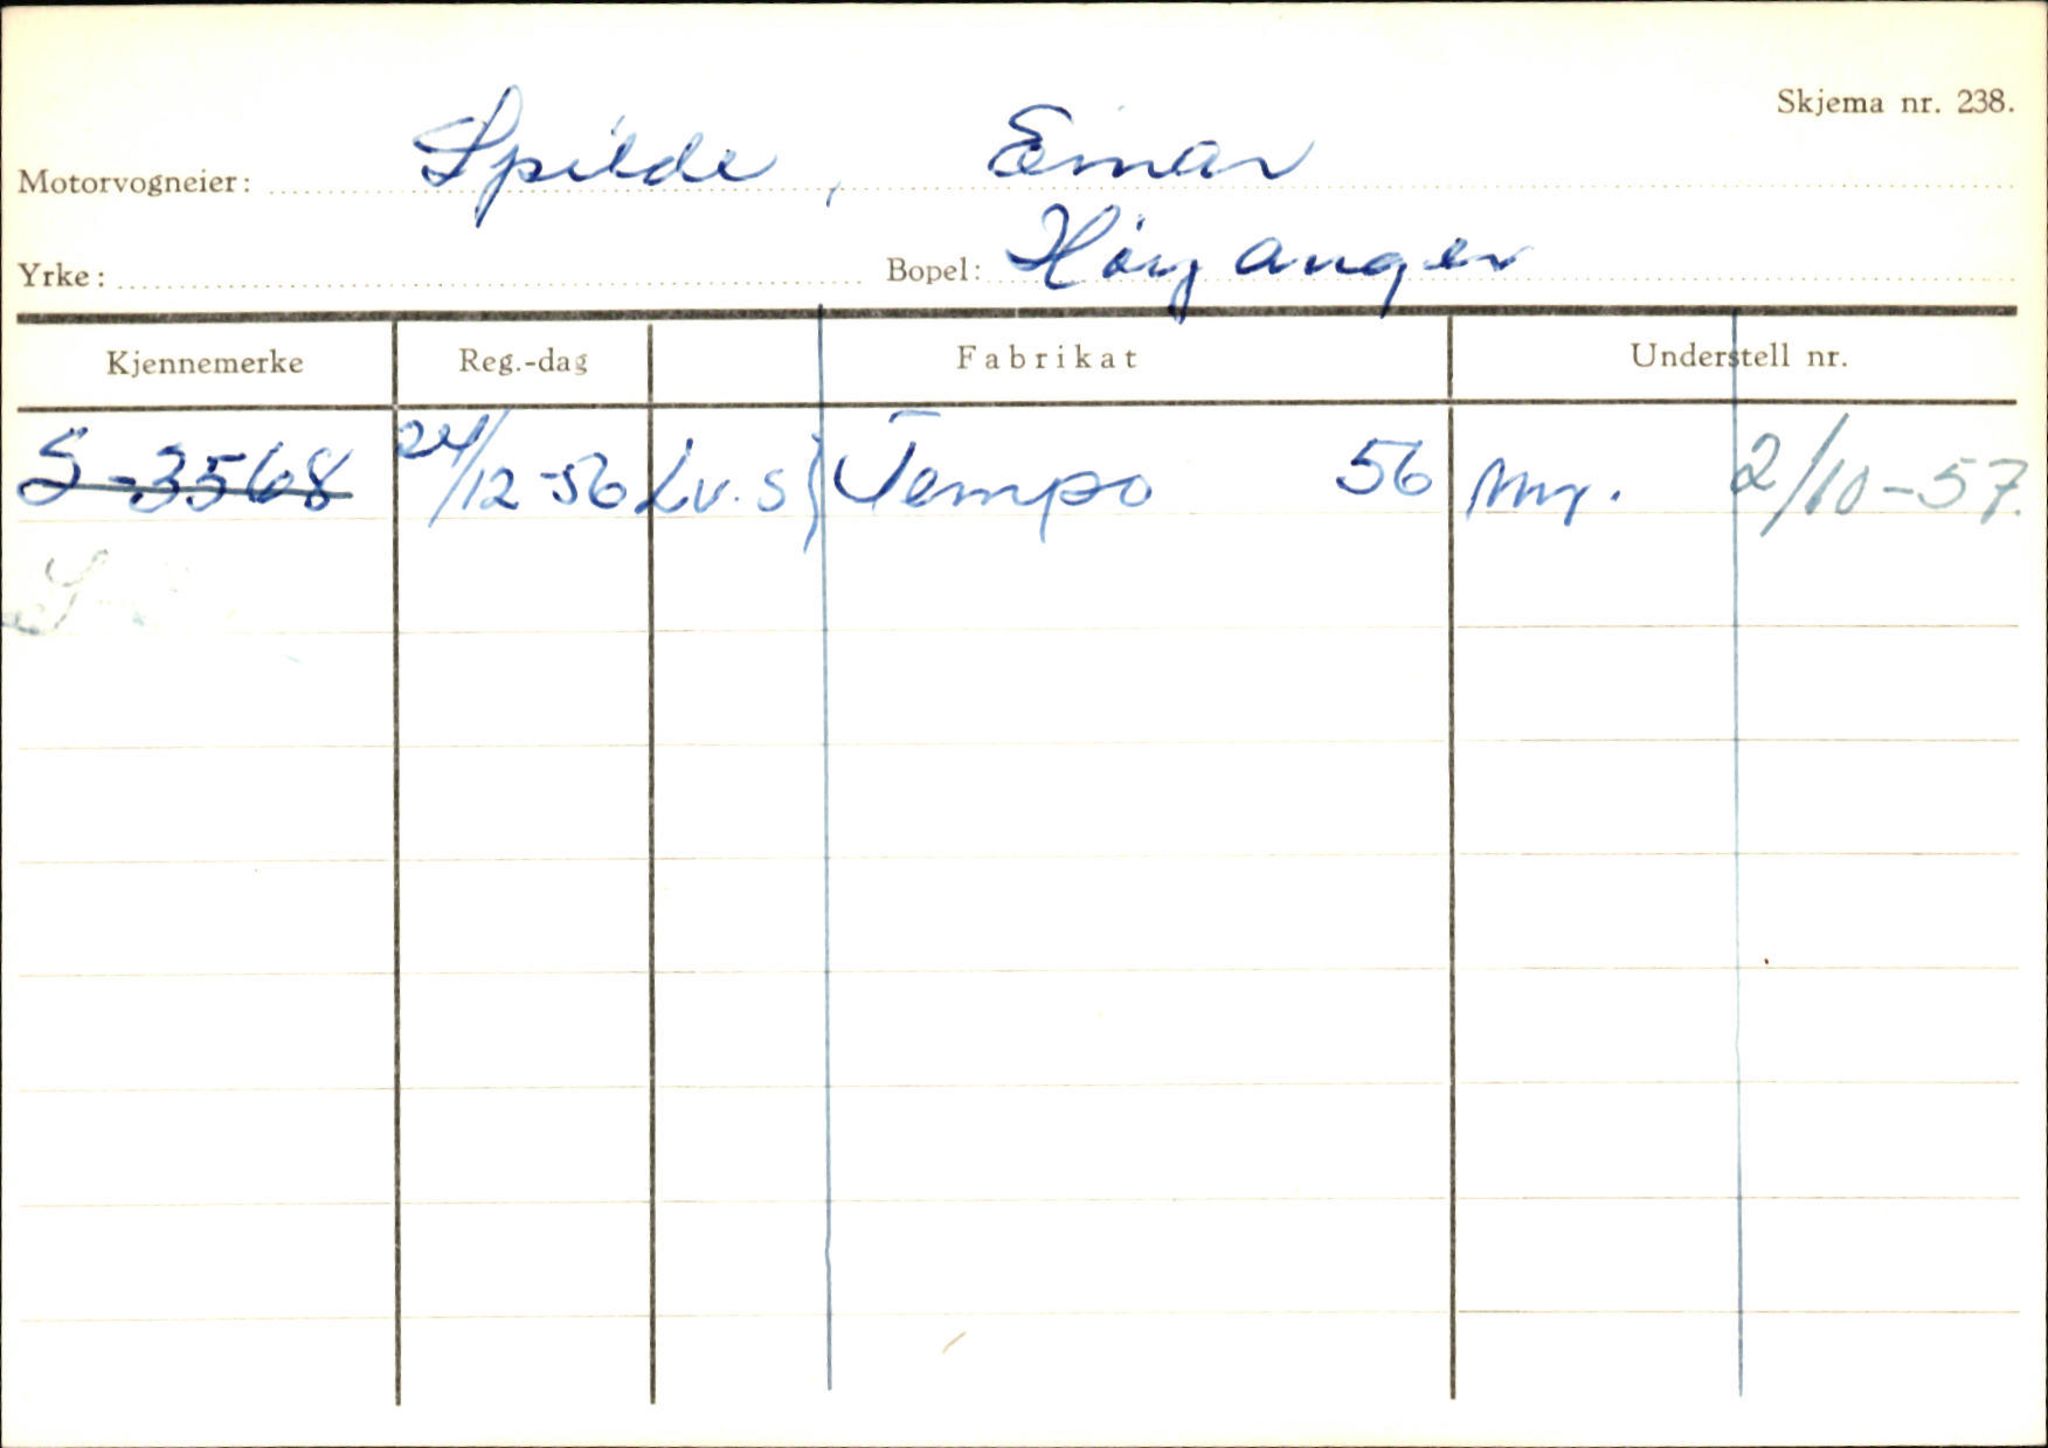 Skjema nr. 238.
Motorvogneier: Spilde, Einar
Yrke: Bopel: Höyanger
Kjennemerke Reg.-dag Fabrikat Understell nr.
S-3568 24/12-56 Lv. s) Tempo 56 Ny. 2/10-57.
S